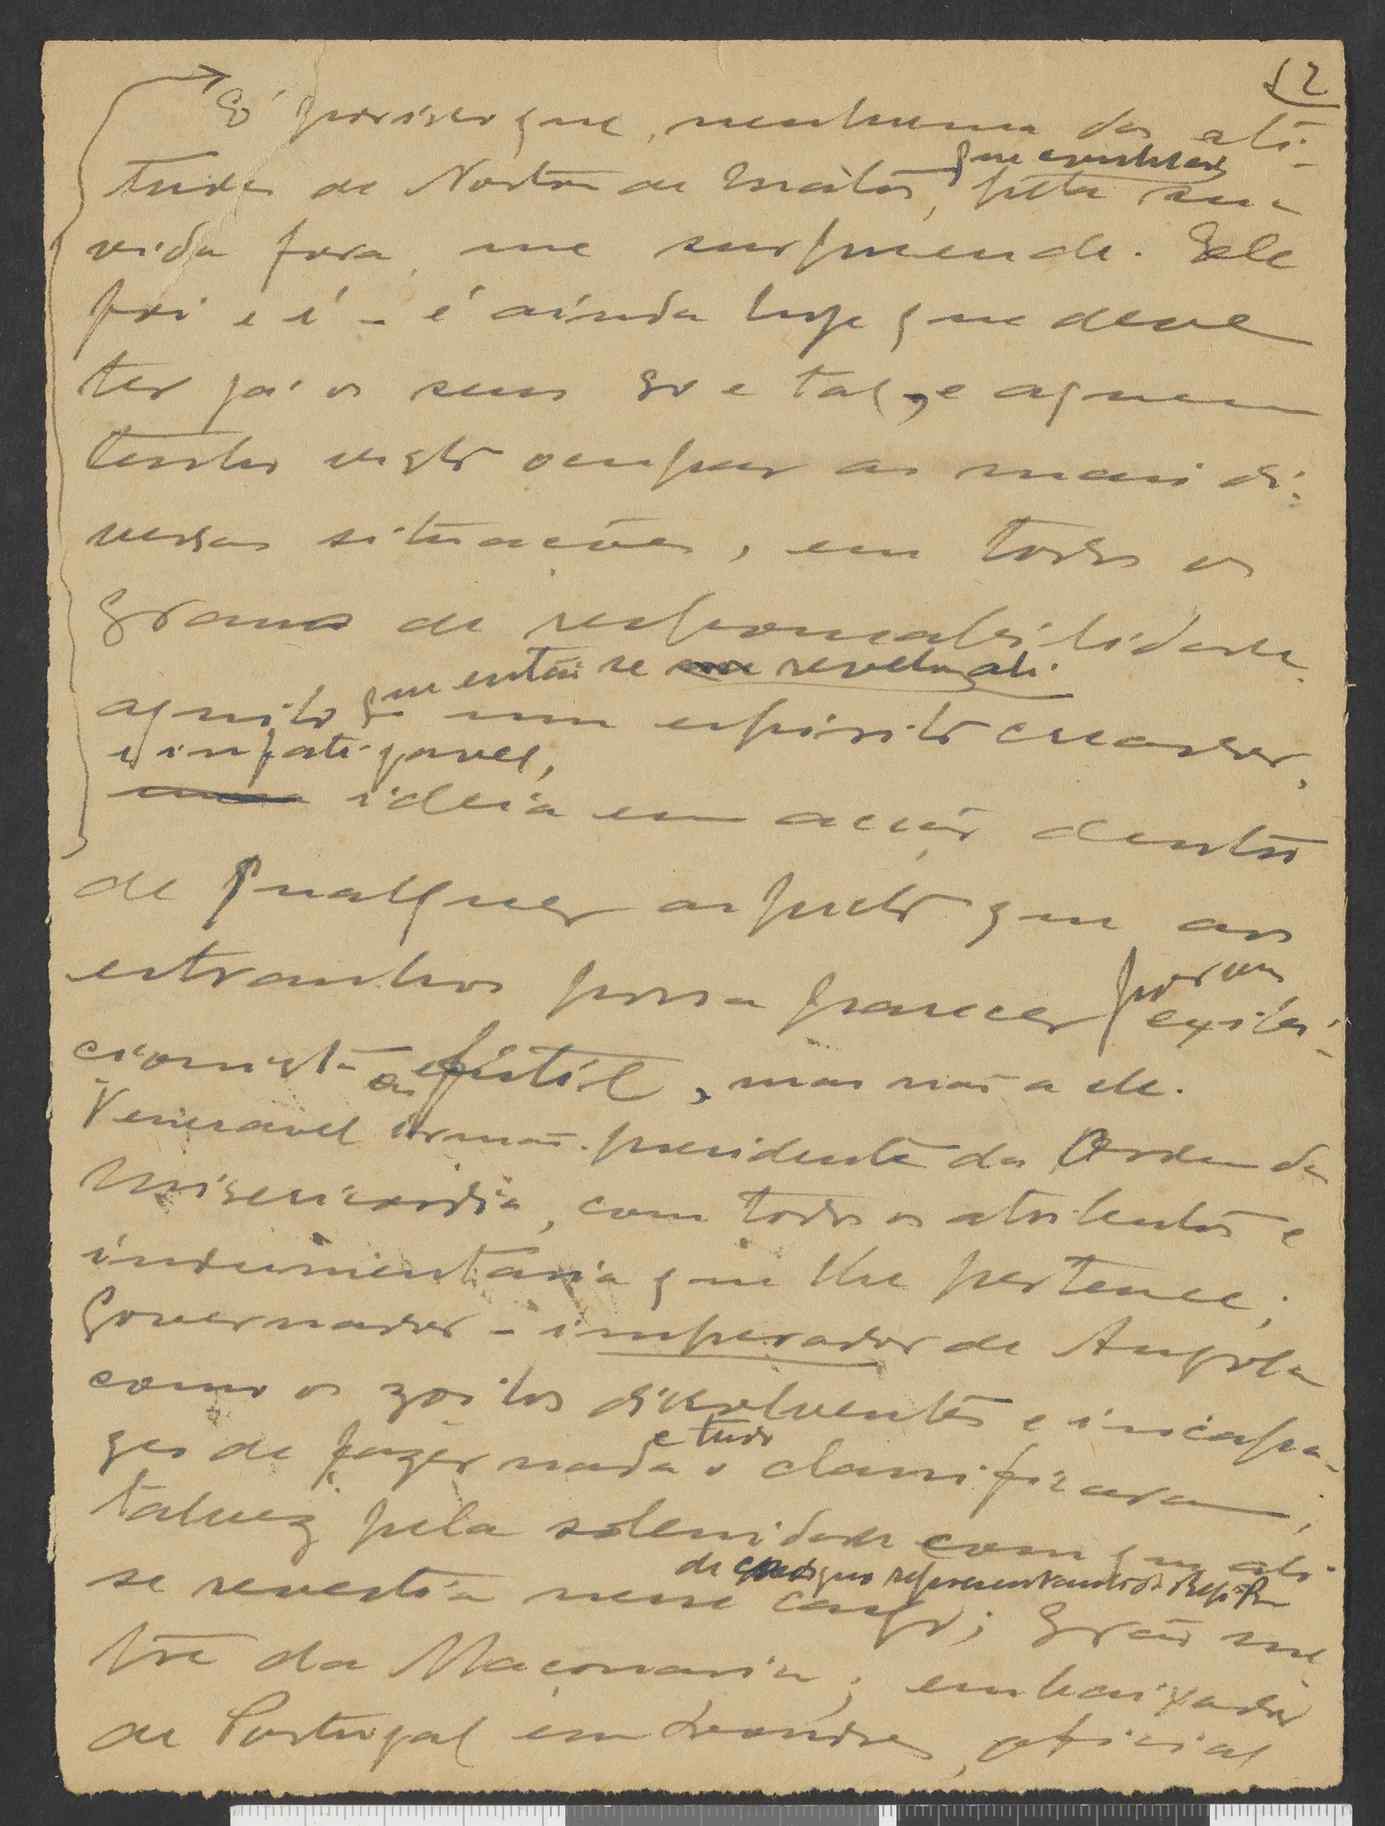 12
É por isso que, nenhuma das ati-
tudes de Norton de Matos, pela sua
que conheceu
vida fora, me surpreende. Ele
foi e é - é ainda hoje que deve
ter já os seus 80 e tal, e a quem
tenho visto ocupar as mais di-
versas situações, em todos os
graus de responsabilidade
que então se revelou ali.
aquilo um espirito creador,
e infatigavel,
ideia em acção dentro
de qualquer aspecto que aos
estranhos possa parecer
por um
exibi-
cionista ou futil, mas não a ele.
Veneravel irmão presidente da Ordem da
Misericordia, com todos os atributos e
indumentaria que lhe pertence;
Governador-imperador de Angola
como os zoilos dissolventes e incapa-
zes de fazer nada o classificaram,
e tudo
talvez pela solenidade com que ali
se revestia nesse cargo; Grão mes
de representante da
tre da Maçonaria; embaixador
de Portugal em Londres, oficial